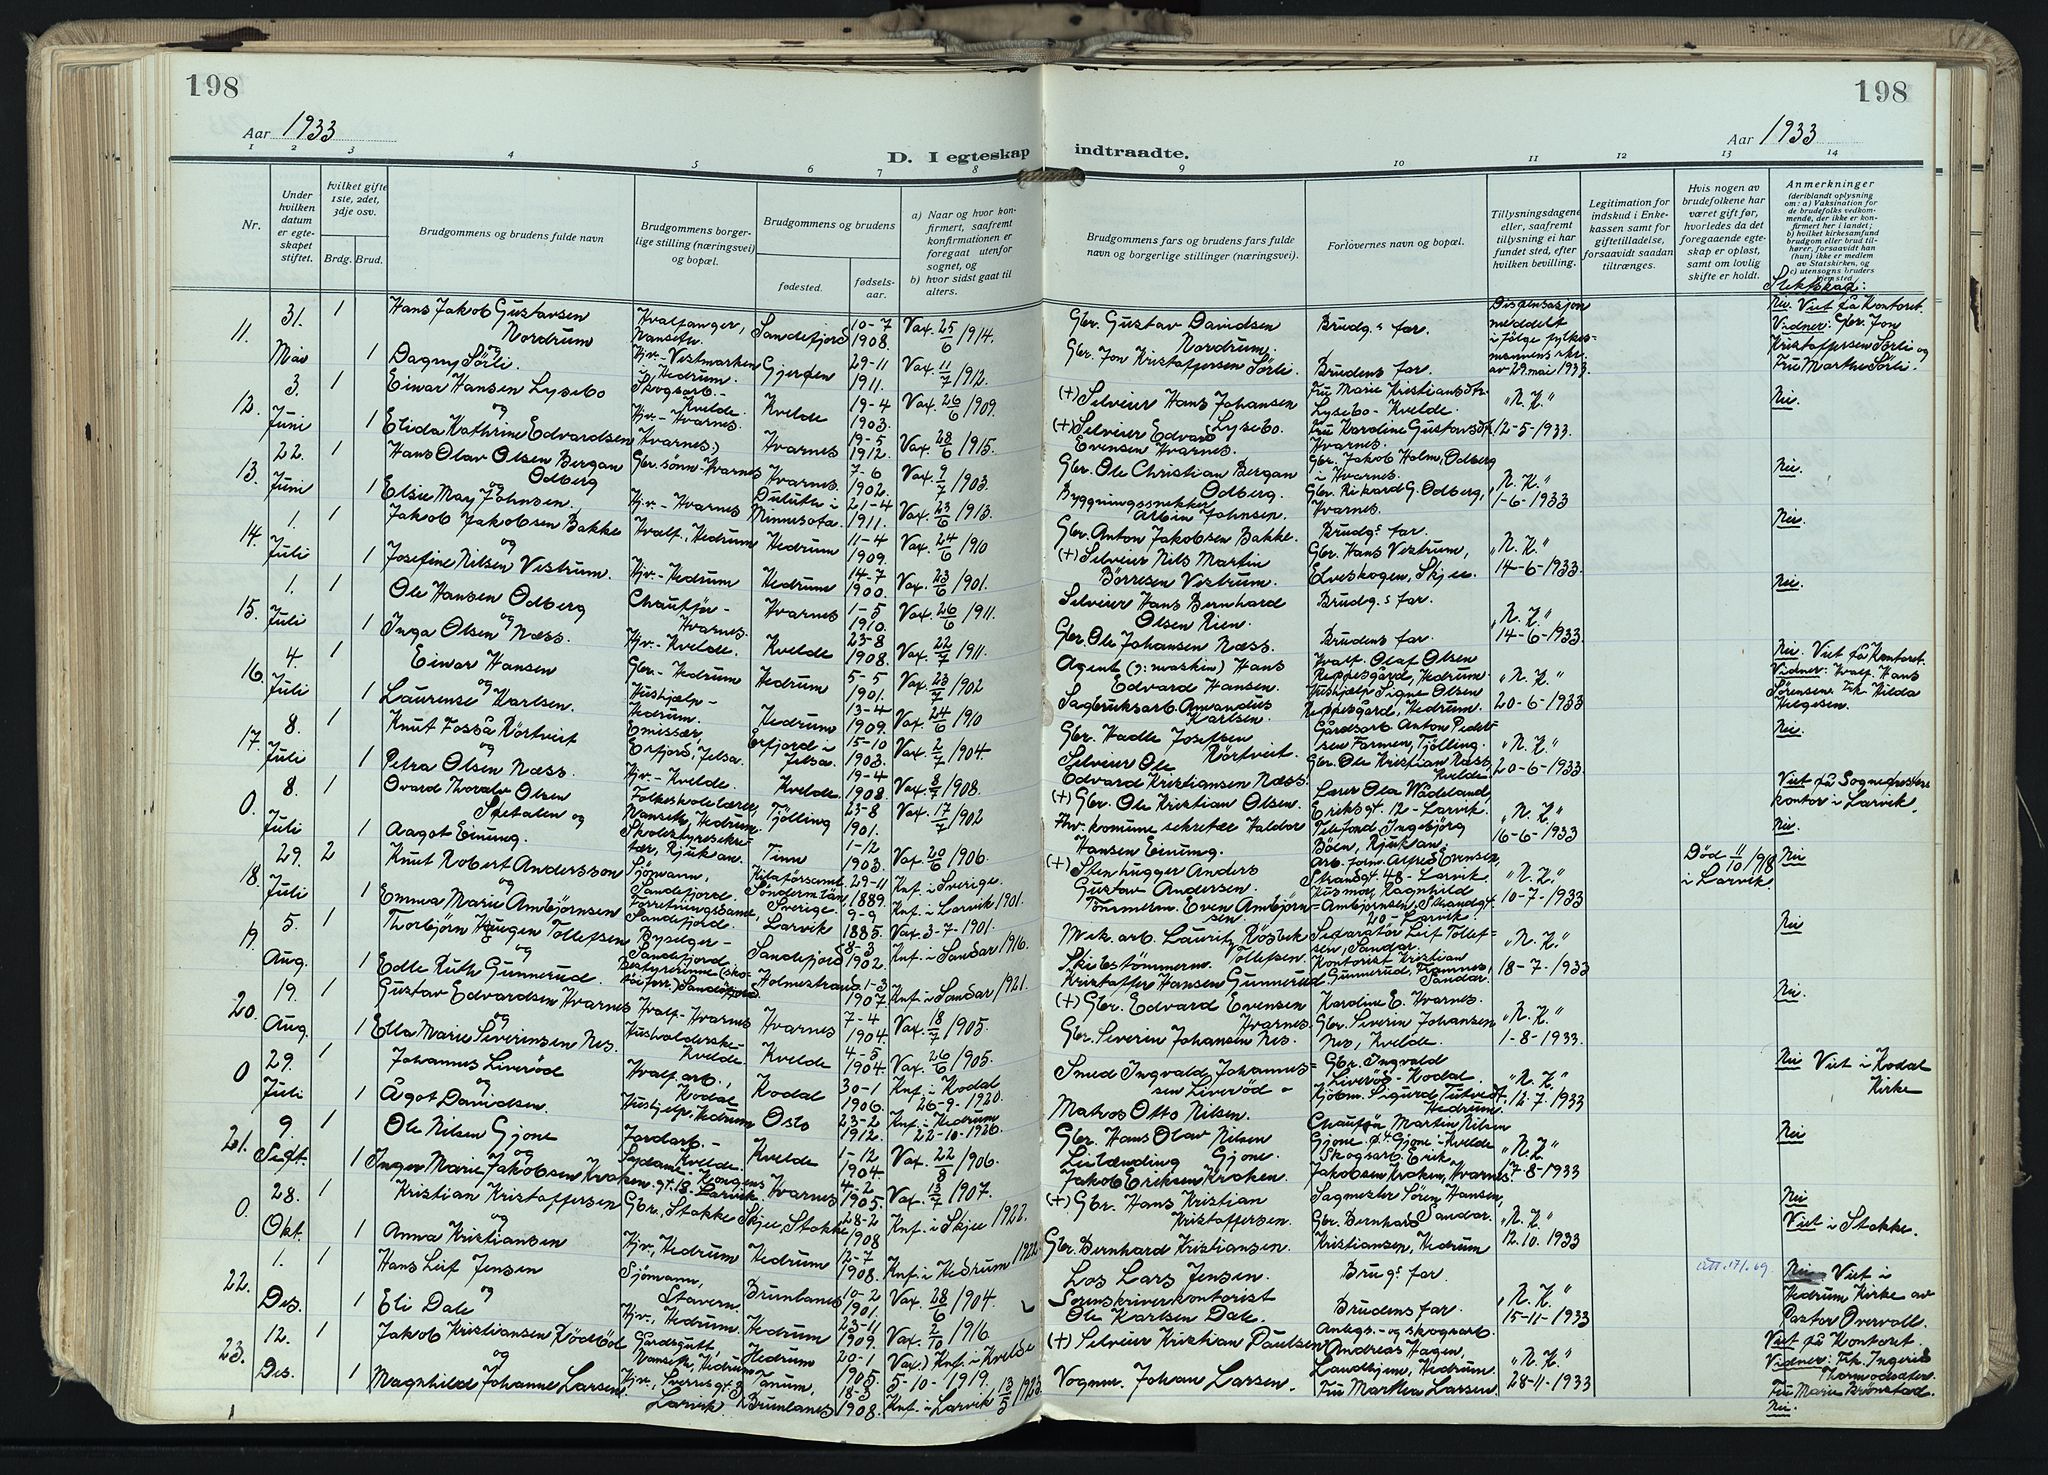 198
Aar 1933
D. I egteskap
1 2 3 4 5 6 7 8
Nr.
Under hvilken datum er egteskapet stiftet.
hvilket gifte 1ste, 2det, 3dje osv.
Brdg. Brud.
Brudgommens og brudens fulde navn
Brudgommens borgerlige stilling (næringsvei) og bopæl.
Brudgommens og brudens
fødested.
fødselsaar.
a) Naar og hvor konfirmert, saafremt konfirmationen er foregaat utenfor sognet, og
b) hvor sidst gaat til alters.
11. 31. Mai 1 Hans Jakob Gustavsen Nordrum Hvalfanger, Nanset Sandefjord 10-7 1908. Vax. 25/6 1914.
og
1 Dagny Sörli. Hjv.- Vestmarken i Hedrum. Gjerpen 29-11 1911. Vax. 11/7 1912.
12. 3. Juni 1 Einar Hansen Lysebo Skogsarb.- Kvelde. Kvelde 19-4 1903. Vax. 26/6 1909.
og
1 Elida Kathrine Edvardsen Hjv.- Hvarnes. Hvarnes 19-5 1912. Vax. 28/6 1915.
13. 22. Juni 1 Hans Olav Olsen Bergan Odberg Gbr. sönn- Hvarnes Hvarnes. 7-6 1902. Vax. 9/7 1903.
og
1 Elsie May Johnsen. Hjv.- Hvarnes Duluth i Minnesota. 21-4 1911. Vax. 23/6 1913.
14. 1. Juli 1 Jakob Jakobsen Bakke Hvalf., Hedrum Hedrum 11-4 1909. Vax. 24/6 1910
og
1 Josefine Nilsen Vestrum. Hjv.- Hedrum Hedrum 14-7 1900. Vax. 23/6 1901.
15. 1. Juli 1 Ole Hansen Odberg Chauffør- Hvarnes. Hvarnes 1-5 1910. Vax. 26/6 1911.
og
1 Inga Olsen Næss. Hjv.- Kvelde. Kvelde 23-8 1908. Vax. 22/7 1911.
16. 4. Juli 1 Einar Hansen Gbr.- Hedrum Hedrum 5-5 1901. Vax. 23/7 1902
og
1 Laurense Karlsen. Hushjelp- Hedrum. Hedrum 13-4 1909. Vax. 24/6 1910
17. 8. Juli 1 Knut Fosså Rörtveit Emissær, Erfjord, Jelsa. Erfjord i Jelsa. 15-10 1903. Vax. 2/7 1904.
og
1 Petra Olsen Næss. Hjv.- Kvelde. Kvelde 19-4 1908. Vax. 8/7 1908.
0. 8. Juli 1 Ovard Thoralv Olsen Spetalen og Folkeskolelærer, Nanset, Hedrum. Tjölling 23-8 1901. Vax. 17/7 1902
1 Aagot Einung. Skolestyresekretær, Rjukan. Tinn 1-12 1903. Vax. 20/6 1906.
18. 29. Juli 2 Knut Robert Andersson Sjömann, Sandefjord. Sverige. 29-11 1889. Knf. i Sverige.
og
1 Emma Marie Ambjörnsen Forretningsdame, Sandefjord. Larvik 9-9 1885. Knf. i Larvik 1901. Vax. 3-7-1901.
19. 5. Aug. 1 Thorbjörn Haugen Tollefsen Byselger- Sandefjord. Sandefjord 8-3 1902. Knf. i Sandar 1916.
og
1 Edle Ruth Gunnerud. Bestyrerinne (skotöiforr.) Sandefjord. Holmestrand 1-3 1907. Knf. i Sandar 1921.
20. 19. Aug. 1 Gustav Edvardsen Hvarnes Hvalf- Hvarnes Hvarnes 7-4 1904. Vax. 18/7 1905.
og
1 Ella Marie Severinsen Nes. Husholderske- Kvelde Kvelde 4-5 1904. Vax. 26/6 1905.
0 29. Juli 1 Johannes Liveröd Hvalfarb., Kodal Kodal 30-1 1906. Knf. i Kodal 26-9-1920.
og
1 Ågot Davidsen. Hushjelp, Hedrum Oslo 23-2 1912. Knf. i Hedrum 22-10-1926.
21. 9. Sept. 1 Ole Nilsen Gjone Jordarb.- Kvelde. Kvelde 1-12 1904. Vax. 22/8 1906.
og
1 Inger Marie Jakobsen Kraken. Sydame- Kongens gt. 18- Larvik. Hvarnes 4-2 1905. Vax. 13/7 1907.
0. 28. Okt. 1 Kristian Kristoffersen Gbr., Stokke Skjee, Stokke 28-2 1908 Knf. i Skjee 1922.
og
1 Anna Kristiansen Hjv., Hedrum Hedrum 12-7 1908. Knf. i Hedrum 1922
22. 1. Des. 1 Hans Leif Jensen Sjömann, Stavern. Brunlanes 10-2 1901. Vax. 28/6 1904.
og
1 Eli Dale Hjv., Hedrum. Hedrum 23-11 1909. Vax. 2/10 1916
23. 12. Des. 1 Jakob Kristiansen Rödböl Gårdsgutt, Nanset, Hedrum Hedrum 20-1 1905. Vax.) Knf. i Kvelde 5-10-1919.
og
1 Magnhild Johanne Larsen Hjv., Larvik. Tanum, Brunlanes 18-3 1908. Knf. i Larvik 13/5 1923.
198
Aar 1933
indtraadte.
9 10 11 12 13 14
Brudgommens fars og brudens fars fulde navn og borgerlige stillinger (næringsvei).
Forlovernes navn og bopæl.
Tillysningsdagene eller, saafremt tillysning ei har fundet sted, efter hvilken bevilling.
Legitimation for indskud i Enkekassen samt for giftetilladelse, forsaavidt saadan tiltrænges.
Hvis nogen av brudefolkene har været gift før, hvorledes da det foregaaende egteskap er opløst, samt om lovlig skifte er holdt.
Anmerkninger (deriblandt oplysning om: a) Vaksination for de brudefolks vedkommende, der ikke er konfirmert her i landet; b) hvilket kirkesamfund brudgom eller brud tilhører, forsaavidt han (hun) ikke er medlem av Statskirken, og c) utensogns bruders hjemsted
Slektskap:
Gbr. Gustav Davidsen Nordrum. Brudg.s far. Dispensasjon meddelt i følge fylkesmannens skr. av 29. mai 1933. Nei. Viet på Kontoret. Vidner: Gbr. Jon Kristoffersen Sörli og Fru Marthe Sörli.
Gbr. Jon Kristoffersen Sörli. Brudens far.
(+) Selveier Hans Johansen Lysebo. Fru Marie Kristiansdtr. Lysebo- Kvelde. "N. K." 12-5-1933. Nei.
(+) Selveier Edvard Evensen Hvarnes. Fru Karoline Gustavsdtr. Hvarnes.
Gbr. Ole Christian Bergan Odberg. Gbr. Jakob Holm, Odberg i Hvarnes. "N. K." 1-6-1933 Nei.
Bygningssnekker Albin Johnsen. Gbr. Rikard G. Odberg, Hvarnes.
Gbr. Anton Jakobsen Bakke. Brudg.s far. "N. K." 14-6-1933. Nei.
(+) Selveier Nils Martin Börresen Vestrum. Gbr. Hans Vestrum, Elveskogen, Skjee.
Selveier Hans Bernhard Olsen Rien. Brudg.s far. "N. K." 14-6-1933. Nei.
Gbr. Ole Johansen Næss. Brudens far.
Agent (i maskin) Hans Edvard Hansen. Hvalf. Olaf Olsen Reppesgård, Hedrum "N. K." 20-6-1933 Nei. Viet på Kontoret. Vidner: Hvalf. Hans Sörensen. Frk. Hilda Helgesen.
Sagbruksarb. Amandus Karlsen. Hushjelp Signe Olsen Reppesgård, Hedrum.
Gbr. Hadle Josefsen Rörtveit. Gårdsarb. Anton Pedersen Farmen, Tjölling. "N. K." 20-6-1933 Nei.
Selveier Ole Edvard Kristiansen Næss. Gbr. Ole Kristian Næss, Kvelde
(+) Gbr. Ole Kristian Olsen. Lærer Ola Wådeland, Eriksgt. 12- Larvik. "N. K." 16-6-1933 Viet på Sogneprestens kontor i Larvik. Nei.
Fhv. komune sekretær Haldor Hansen Einung. Telefond. Ingebjörg Böen, Rjukan.
(+) Stenhugger Anders Gustav Andersen. Arb. form. Alfred Evensen, Strandgt. 48- Larvik "N. K." 10-7-1933 Död 11/10 1918 i Larvik Nei
Tömmerm. Even Ambjörnsen. Husmor Ragnhild Ambjörnsen, Strandgt. 20- Larvik.
Mek. arb. Lauritz Rösbek Tollefsen. Leif Tollefsen, Sandar. "N. K." 18-7-1933 Nei
Skibstömmerm. Kristoffer Hansen Gunnerud Kontorist Kristian Gunnerud, Framnes, Sandar.
(+) Gbr. Edvard Evensen Hvarnes. Karoline E. Hvarnes. "N. K." 1-8-1933. Nei.
Gbr. Severin Johansen Nes. Gbr. Severin Johansen Nes, Kvelde.
Smed Ingvald Johannessen Liveröd - Gbr. Ingvald Liveröd- Kodal. "N. K." 12-7-1933 Nei Viet i Kodal Kirke
Matros Otto Nilsen. Kjöbm. Sigurd Tutvedt, Hedrum.
Gbr. Hans Olav Nilsen Gjone. Chauffør Martin Nilsen Gjone- Kvelde "N. K." 17-8-1933 Nei
Leilending Jakob Eriksen Kraken. Skogsarb. Erik Jakobsen Kraken, Hvarnes.
(+) Gbr. Hans Kristian Kristoffersen. Sagmester Sören Hansen, Sandar. "N. K." 12.10.1933 Nei Viet i Stokke.
Gbr. Bernhard Kristiansen. Gbr. Bernhard Kristiansen, Hedrum
Los Lars Jensen. Brudg.s far. "N. K." 15-11-1933 Nei Viet i Hedrum Kirke av Pastor Overvoll.
Sorenskriverkontorist Ole Karlsen Dale. Brudens far.
(+) Selveier Kristian Paulsen Anlegs.- og skogsarb. Andreas Hagen, Landhjem, Hedrum "N. K." 28-11-1933 Viet på Kontoret. Vidner: Frk. Ingerid Thormodsæter. Fru Marie Brönstad. Nei.
Vognm. Johan Larsen. Fru Martha Larsen